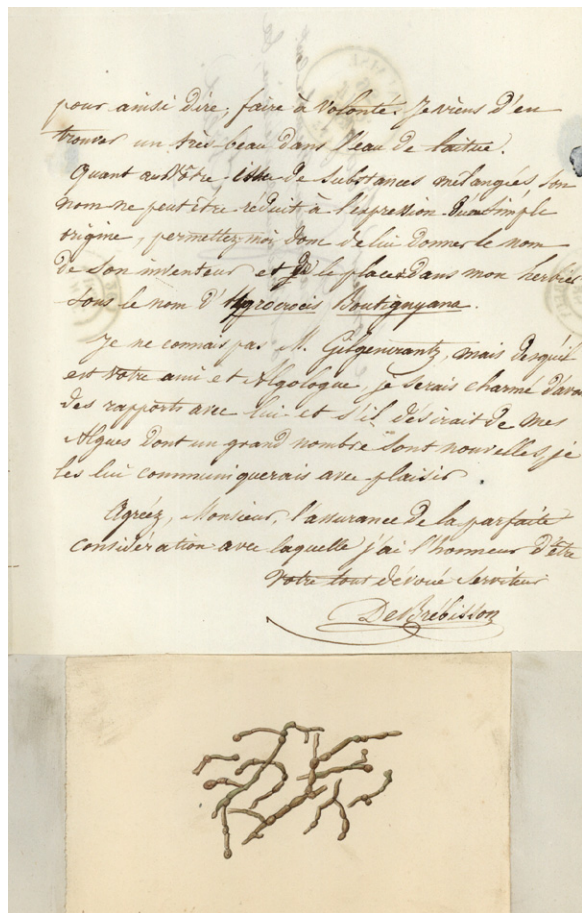 pour ainsi dire, faire à volonté. Je viens d'en
trouver un très beau dans l'eau de laitue.
Quant au Vôtre, issu de substances mélangées, son
nom ne peut être réduit à l'expression d'une simple
origine, permettez moi, donc de lui donner le nom
de son inventeur et de le placer dans mon herbier
sous le nom d'Hygrocrocis Boutignyana.
Je ne connais pas M. mais dès qu'il
est votre ami et Algologue, je serais charmé d'avoir
des rapports avec lui et s'il désirait de mes
Algues dont un grand nombre sont nouvelles, je
les lui communiquerais avec plaisir.
Agréez, Monsieur, l'assurance de la parfaite
considération avec laquelle j'ai l'honneur d'être
votre tout dévoué Serviteur
De Brébisson